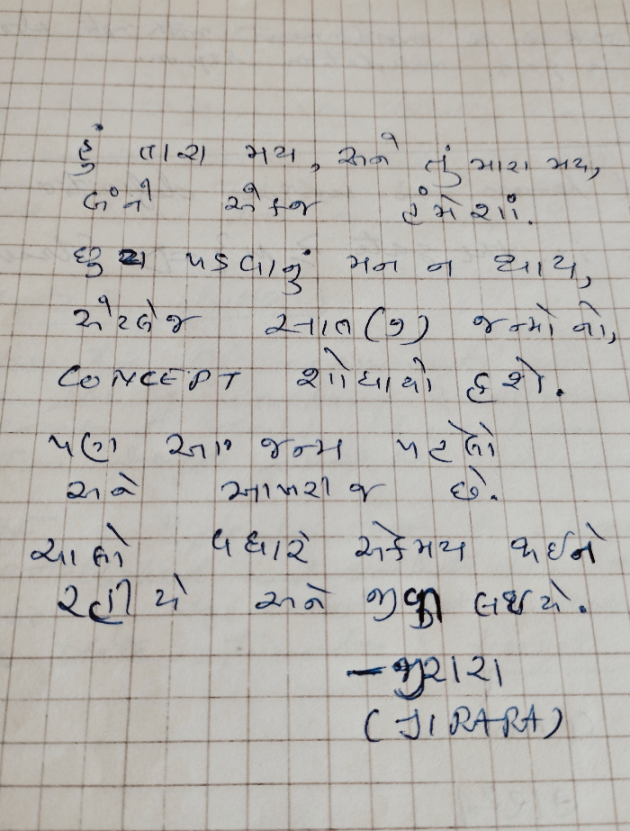 હું તારા મય, અને તું મારા મય,
બંને એકજ હંમેશાં.
છુટા પડવાનું મન ન થાય,
એટલેજ સાત (૭) જન્મોનો,
CONCEPT શોધાયો હશે.
પણ આ જન્મ પહેલો
અને આખરીજ છે.
ચાલો વધારે એકમય થઈને
રહીયે અને જીવી લઈયે.
- જીરારા
(JIRARA)